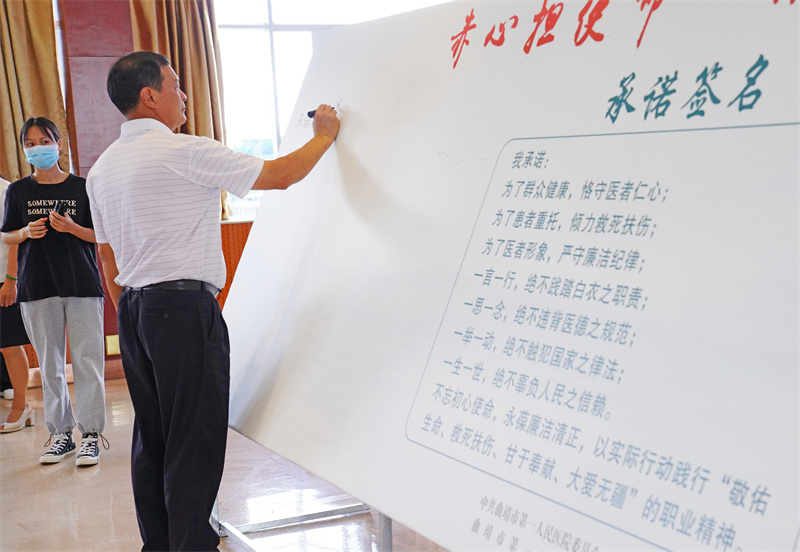 赤心担使命
承诺签名
我承诺：
为了群众健康，恪守医者仁心；
为了患者重托，倾力救死扶伤；
为了医者形象，严守廉洁纪律；
一言一行，绝不践踏白衣之职责；
一思一念，绝不违背医德之规范；
一举一动，绝不触犯国家之律法；
一生一世，绝不辜负人民之信赖。
不忘初心使命，永葆廉洁清正，以实际行动践行“敬佑
生命、救死扶伤、甘于奉献、大爱无疆”的职业精神
中共曲靖市第一人民医院委员
曲靖市第一
SOMEWHERE
SOMEWHERE